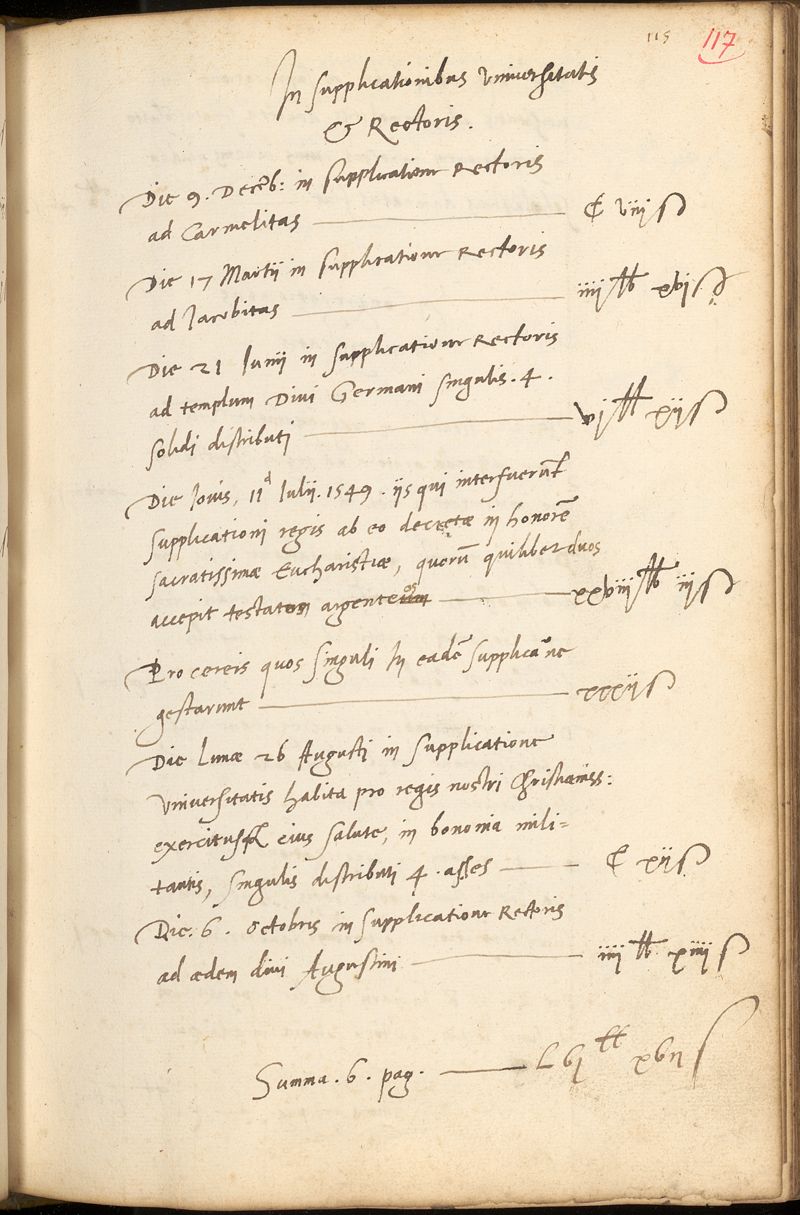 115 117
In supplicationibus Universitatis
& Rectoris.
Die 9. Decēb: in supplicatione Rectoris
ad Carmelitas C viii s
Die 17 Martii in supplicatione Rectoris
ad Iacobitas iiii lb xvi s
Die 21 Iunii in supplicatione Rectoris
ad templum Divi Germani singulis .4.
solidi distributi vi lb xii s
Die Iovis, 11ᵃ Iulii. 1549. iis qui interfuerūt
supplicationi regis ab eo decretæ in honorē
sacratissimæ Eucharistiæ, quorū quilibet duos
accepit testaton argenteos xxviii lb iii s
Pro cereis quos singuli in eadē supplicaōne
gestarunt xxxii s
Die Lunæ 26 Augusti in supplicatione
Universitatis habita pro regis nostri Christianiss:
exercitusq; eius salute, in bononia mili=
tantis, singulis distributi 4. asses C xii s
Die. 6. Octobris in supplicatione Rectoris
ad ædem divi Augustini iiii lb xiiii s
Summa. 6. pag. Lvi lb xvii s